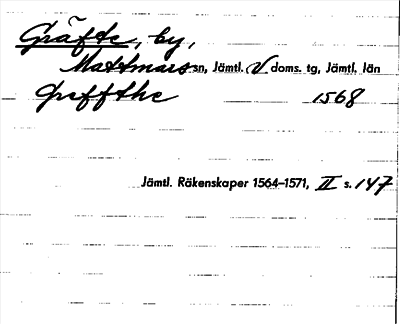 Gräfte, by,
Mattmars sn, Jämtl. V doms. tg, Jämtl. län
Greffthe 1568
Jämtl. Räkenskaper 1564–1571, II s. 147